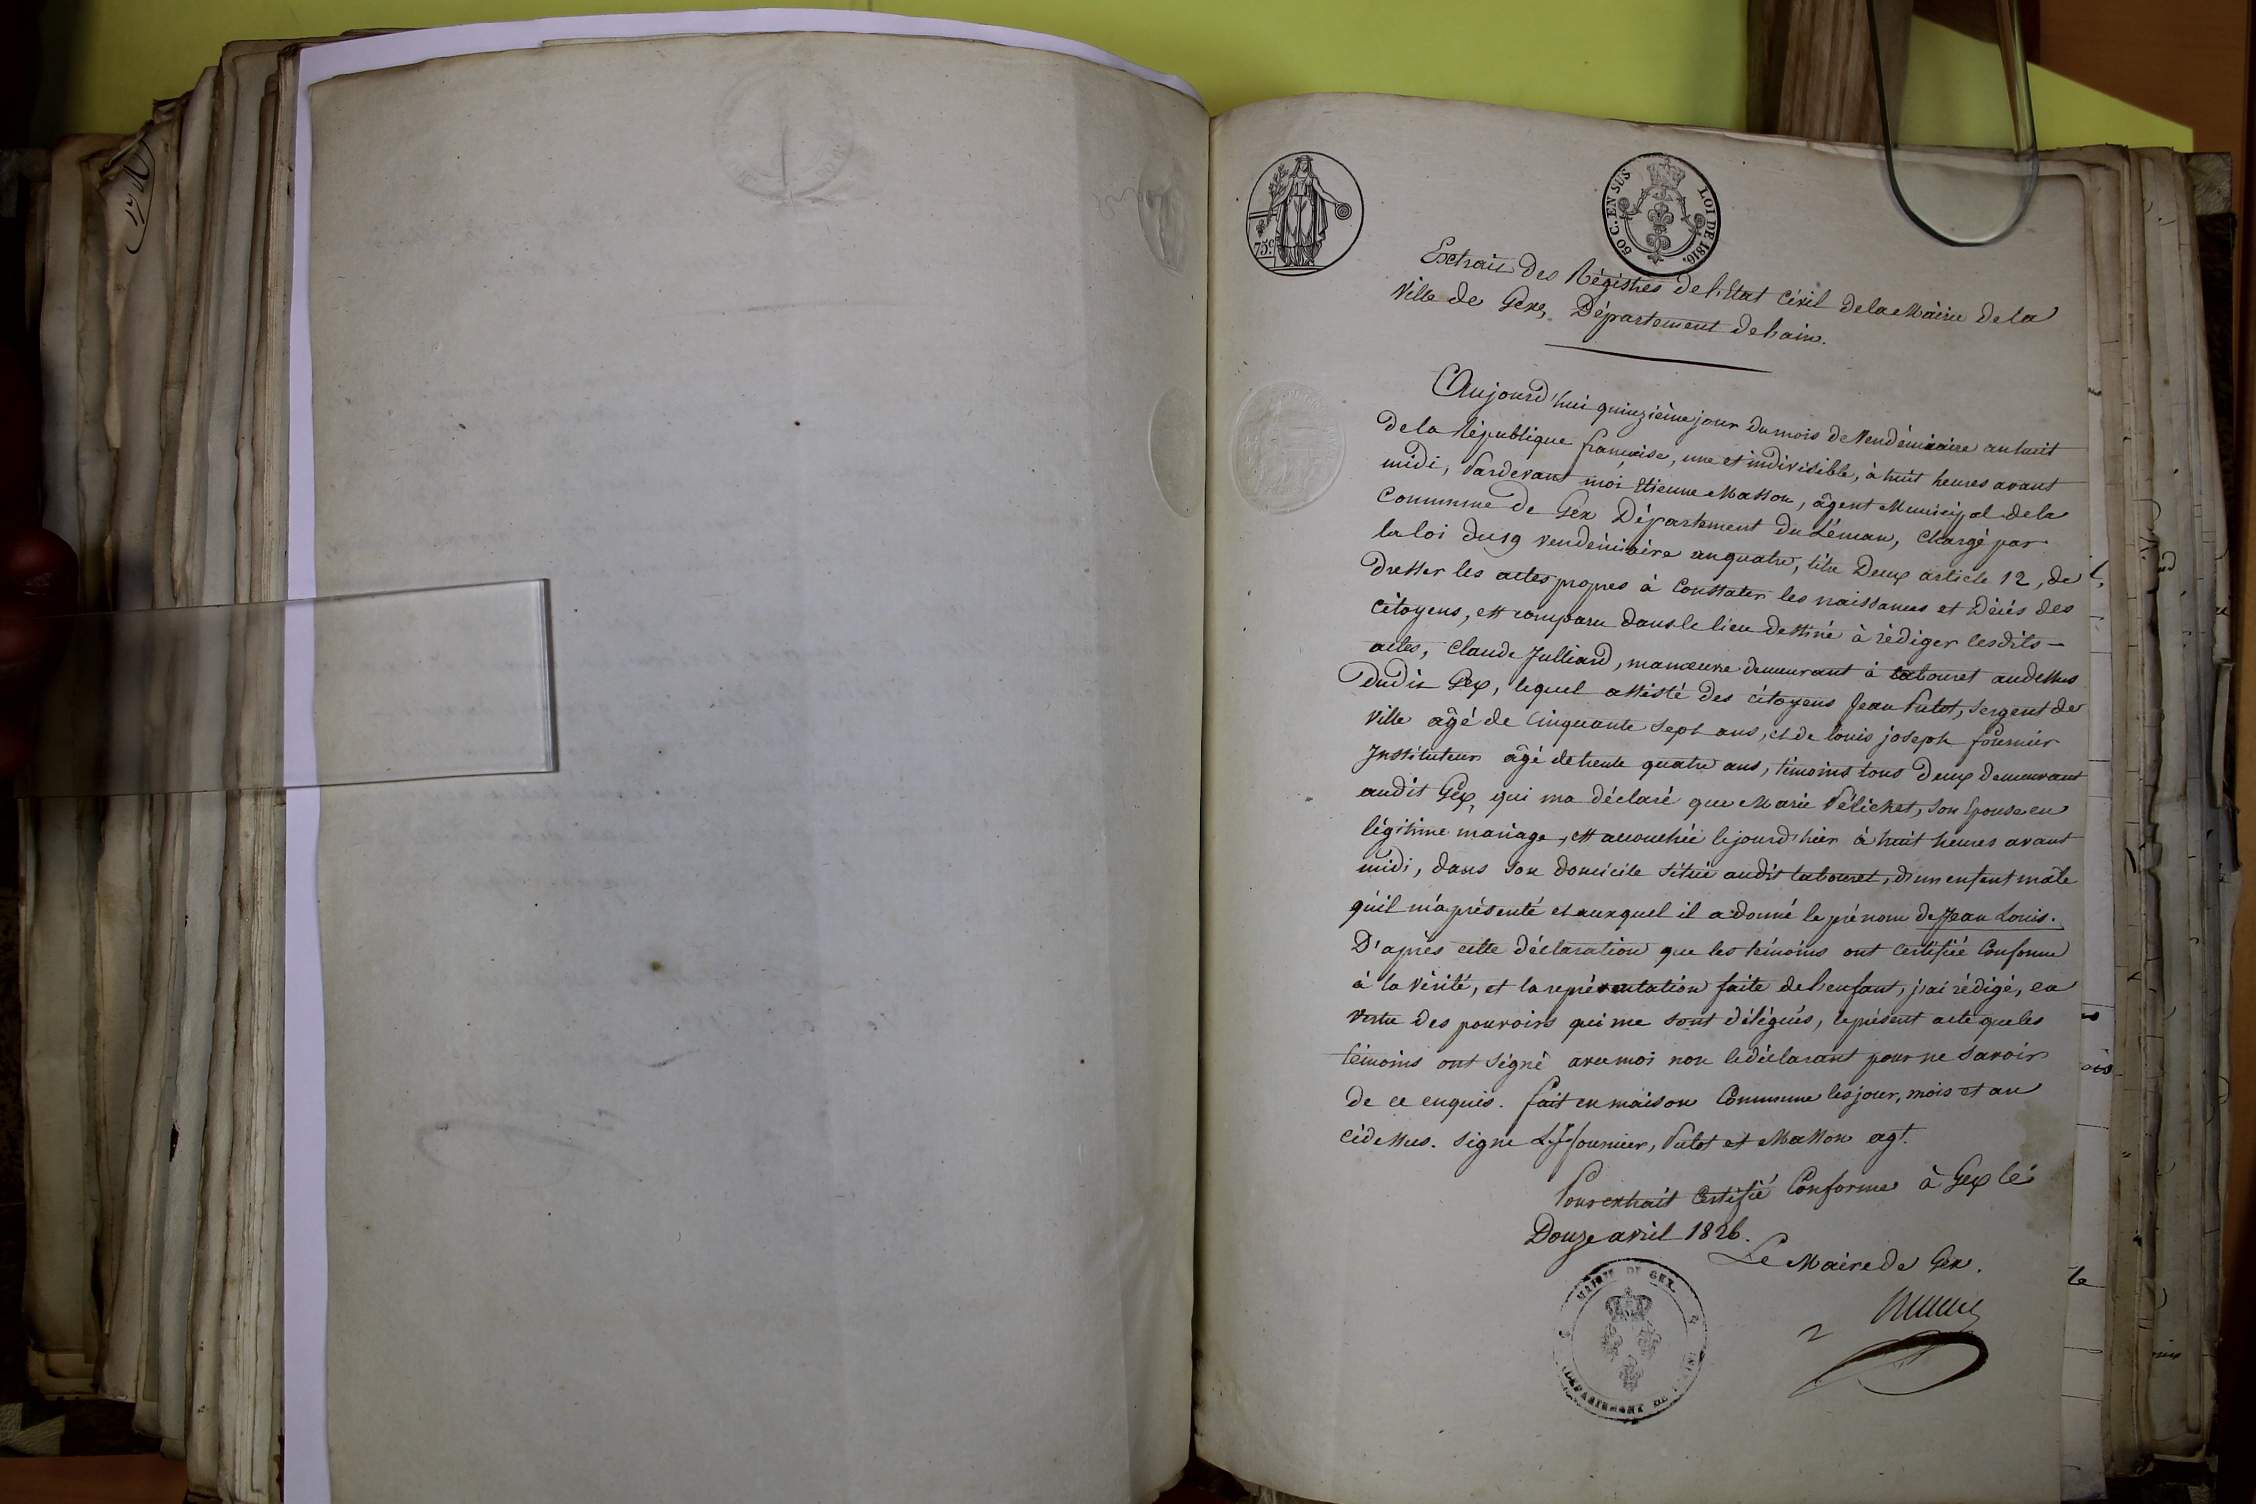 75.c
50 C. EN SUS LOI DE 1816.
Extrait des Régistres de l'Etat Civil de la Mairie de la
Ville de Gex, Département de l'ain.
Aujourd'hui quinzième jour du mois de Vendémiaire an huit
de la République française, une et indivisible, à huit heures avant
midi, Pardevant moi Etienne Masson, âgent Municipal de la
Commune de Gex Département du Léman, Chargé par
la loi du 19 vendémiaire an quatre, titre Deux article 12, de
dresser les actes propres à Constater les naissances et Décés des
Citoyens, est comparu dans le lieu destiné à rédiger lesdits
actes, Claude Julliard, manœuvre demeurant à tabouret audessus
Dudit Gex, lequel assisté des citoyens Jean Putot, sergent de
Ville âgé de Cinquante sept ans, et de louis joseph fournier
Instituteur âgé de trente quatre ans, témoins tous Deux demeurant
audit Gex, qui ma déclaré que Marie Pélichet, son Epouse en
légitime mariage, est accouchée le jourd'hier à huit heures avant
midi, dans son domicile situé audit tabouret, d'un enfant mâle
qu'il m'a présenté et auxquel il a donné le prénom de Jean Louis.
D'après cette déclaration que les témoins ont Certifiée Conforme
à la Vérité, et la représentation faite de l'enfant, j'ai rédigé, en
vertu des pouvoirs qui me sont délégués, le présent acte que les
témoins ont signé avec moi non le déclarant pour ne savoir
de ce enquis. fait en maison Commune les jour, mois et an
cidessus. signé L J fournier, Putot et Masson agt.
Pour extrait Certifié Conforme à Gex le
Douze avril 1826.
Le Maire de Gex.
MAIRIE DE GEX
DEPARTEMENT DE L'AIN